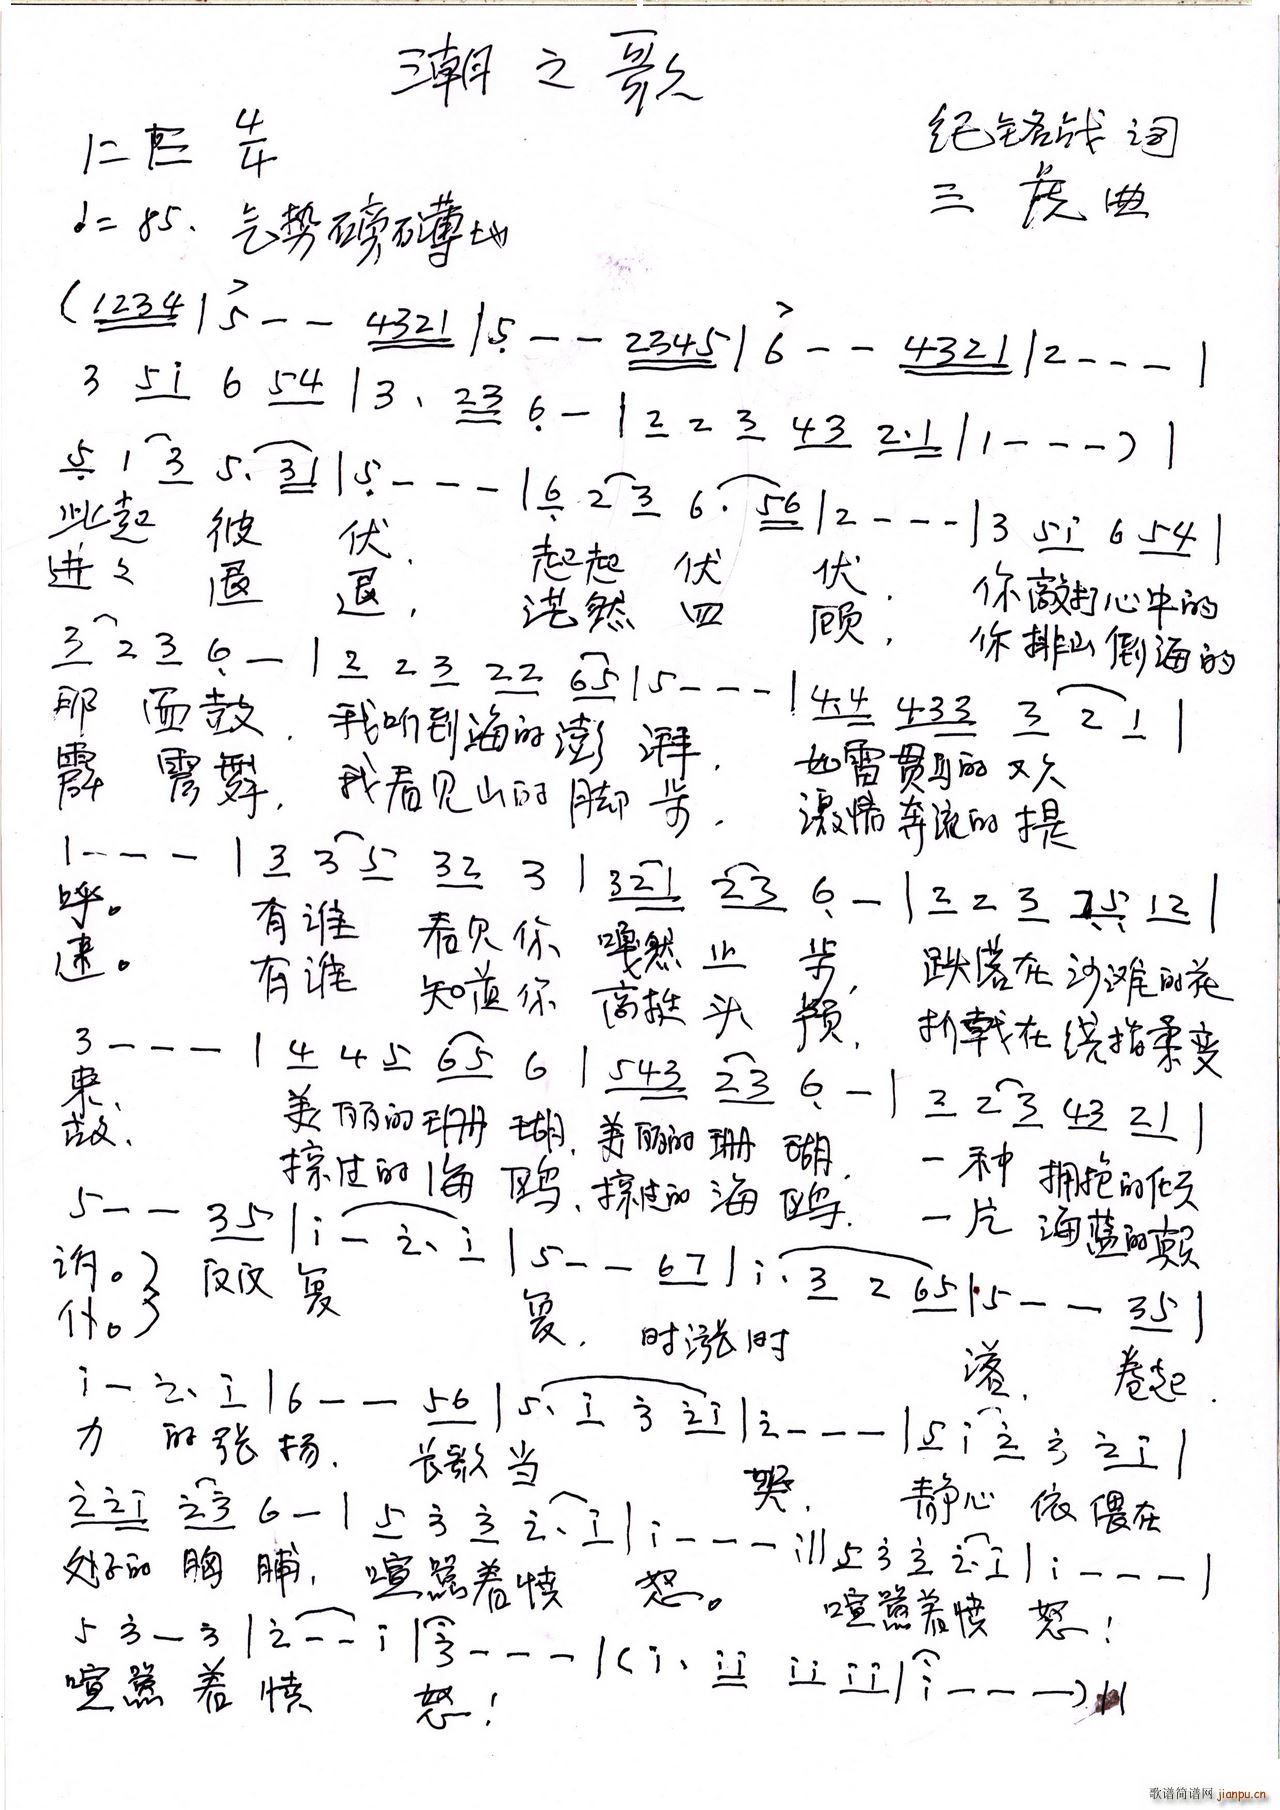 潮之歌
1=E 4/4
纪铭战 词
♩=85. 气势磅礴地
三虎曲
(1234|5--4321|5--2345|6--4321|2---|
3 5i 6 54|3. 23 6-|2 2 3 43 2.1|1---)|
5 1 3 5. 31|5---|6 2 3 6. 56|2---|3 5i 6 54|
此起 彼 伏. 起起 伏 伏. 你敲打心中的
进々 退 退, 茫然 四 顾, 你排山倒海的
3 2 3 6-|2 2 3 22 65|5---|4.4 433 3 2 1|
那 面鼓. 我听到海的澎湃. 如雷贯耳的欢
霹雳舞, 我看见山的脚步. 激情奔流的提
1---|3 3 5 32 3|321 23 6-|2 2 3 75 12|
呼。 有谁 看见你 嘎然止步, 跌落在沙滩的花
速。 有谁 知道你 高挺头颅, 折戟在绕指柔变
3---|4 4 5 65 6|543 23 6-|2 2 3 43 21|
束、 美丽的珊瑚, 美丽的珊瑚. 一种 拥抱的倾
故、 掠过的海鸥, 掠过的海鸥. 一片 海蓝的颠
5--35|i-2.i|5--67|i.3 2 65|5--35|
诉。} 反反复 复. 时涨时 落, 卷起.
仆。}
i-2.i|6--56|5.i 3 2i|2---|5 i 2 3 2i|
力 的张扬. 长歌当 哭, 静心 依偎在
22i 23 6-|5 3 3 2.i|i---:||5 3 3 2.i|i---|
处子的胸脯, 喧嚣着愤 怒。 喧嚣着愤 怒!
5 3-3|2--i|3---|(i. ii ii ii|i---)||
喧嚣着愤 怒!
歌谱简谱网 jianpu.cn